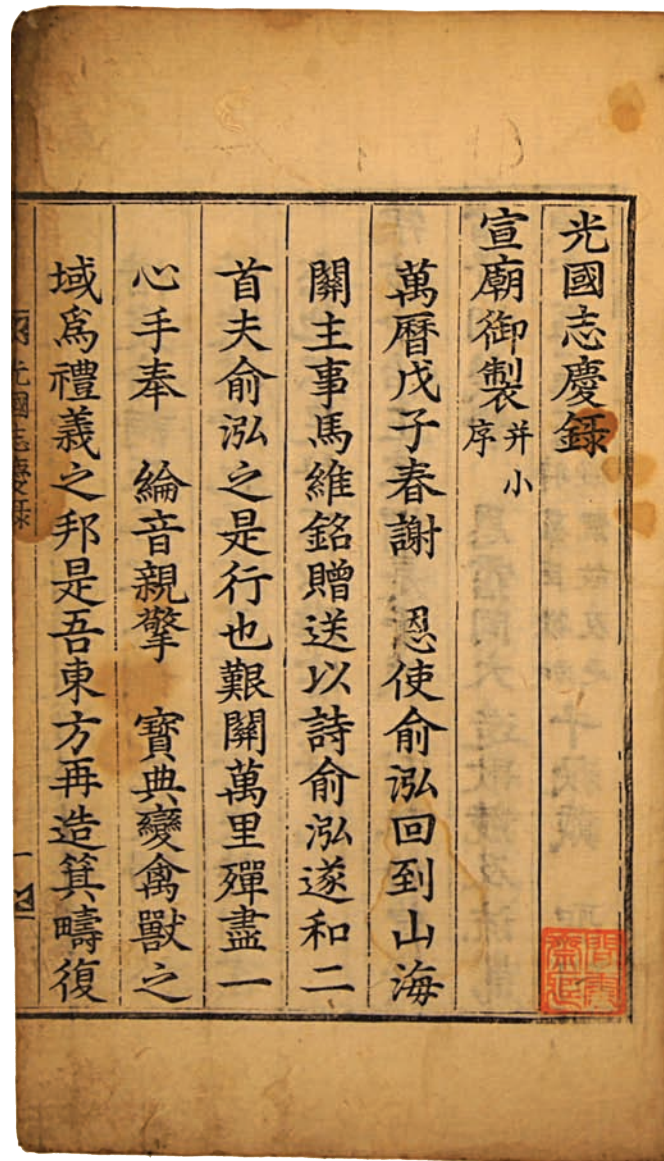 光國志慶錄
宣廟御製并小序
萬曆戊子春謝　恩使俞泓回到山海
關主事馬維銘贈送以詩俞泓遂和二
首夫俞泓之是行也艱關萬里殫盡一
心手奉　綸音親擎　寶典變禽獸之
域爲禮義之邦是吾東方再造箕疇復
光國志慶錄
一